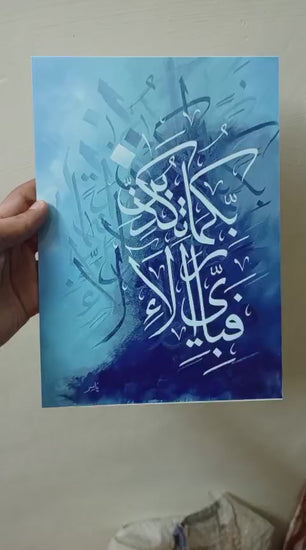 فَبِأَيِّ آلَاءِ
رَبِّكُمَا تُكَذِّبَانِ
ياسر